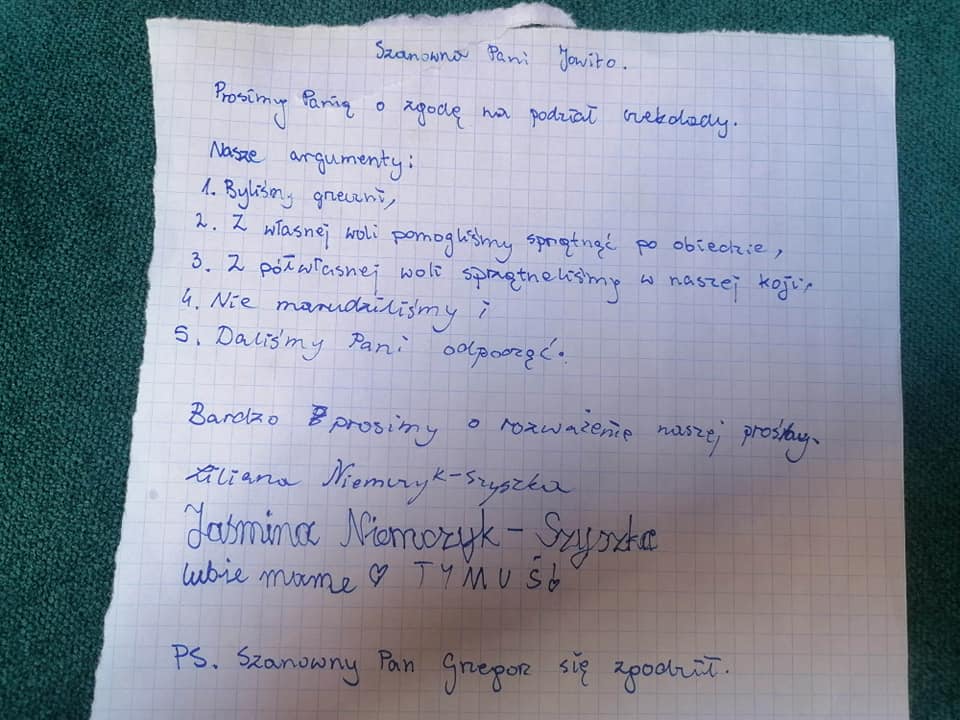 Szanowna Pani Jowito.
Prosimy Panią o zgodę na podział czekolady.
Nasze argumenty:
1. Byliśmy grzeczni,
2. Z własnej woli pomogliśmy sprzątnąć po obiedzie,
3. Z półwłasnej woli sprzątneliśmy w naszej koji,
4. Nie marudziliśmy i
5. Daliśmy Pani odpocząć.
Bardzo prosimy o rozważenie naszej prośby.
Liliana Niemczyk-Szyszka
Jaśmina Niemczyk-Szyszka
lubie mame ♡ TYMUŚ
PS. Szanowny Pan Grzegorz się zgodził.